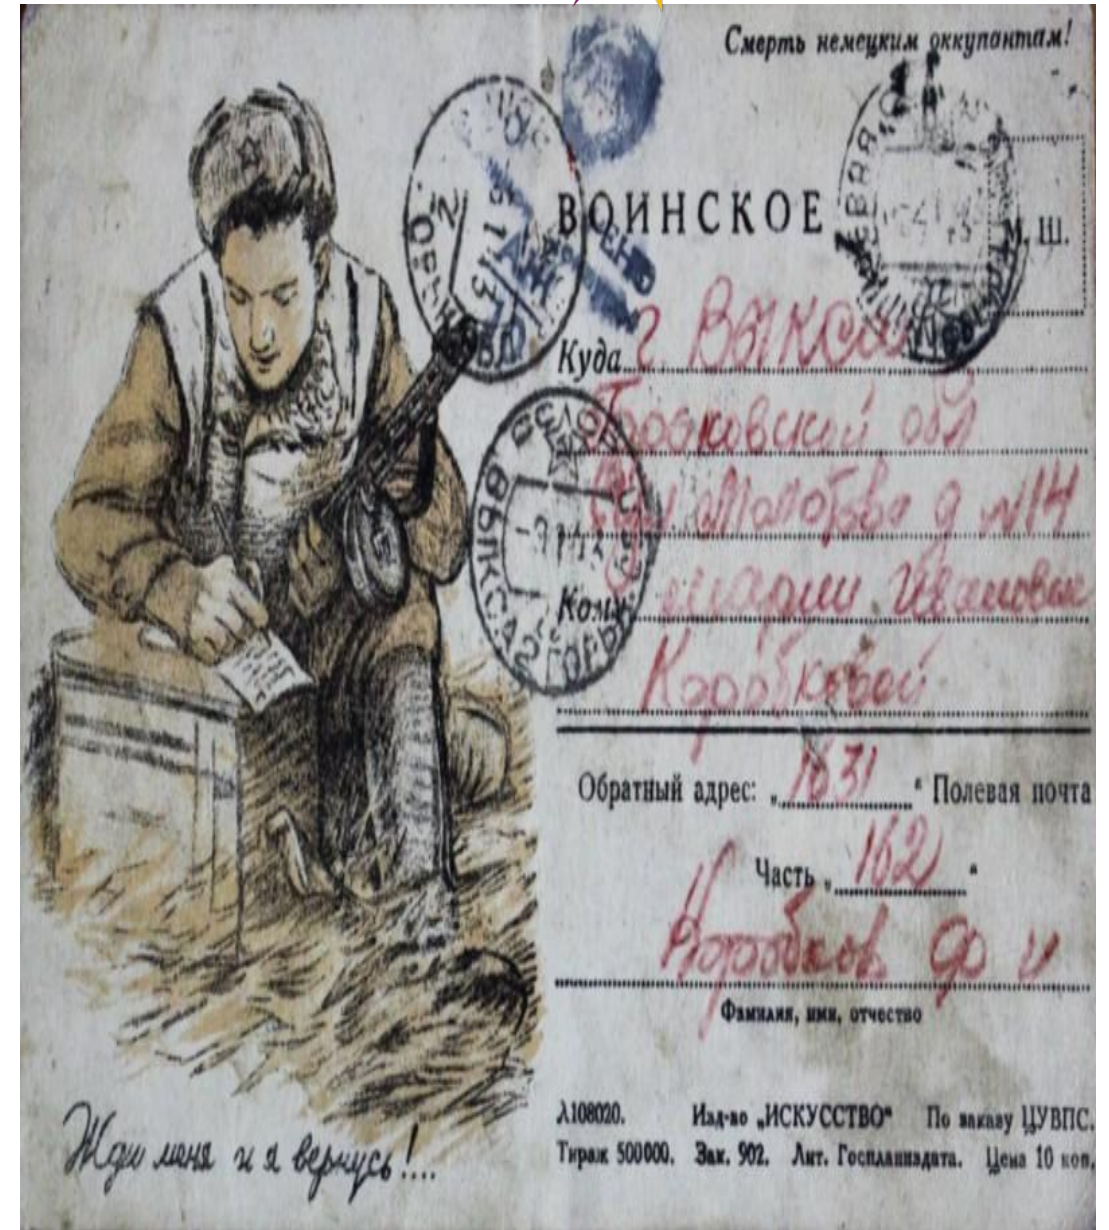 Смерть немецким оккупантам!
ВОИНСКОЕ
М. Ш.
Куда г. Выкса
Горьковской обл
ул Молотова д №14
Кому: Марии Ивановне
Коробковой
Обратный адрес: „1631“ Полевая почта
Часть „162“
Коробков Ф И
Фамилия, имя, отчество
Жди меня и я вернусь!...
Л108020. Изд-во „ИСКУССТВО“ По заказу ЦУВПС.
Тираж 500000. Зак. 902. Лит. Госпланиздата. Цена 10 коп.
ВЫКСА ГОРЬК